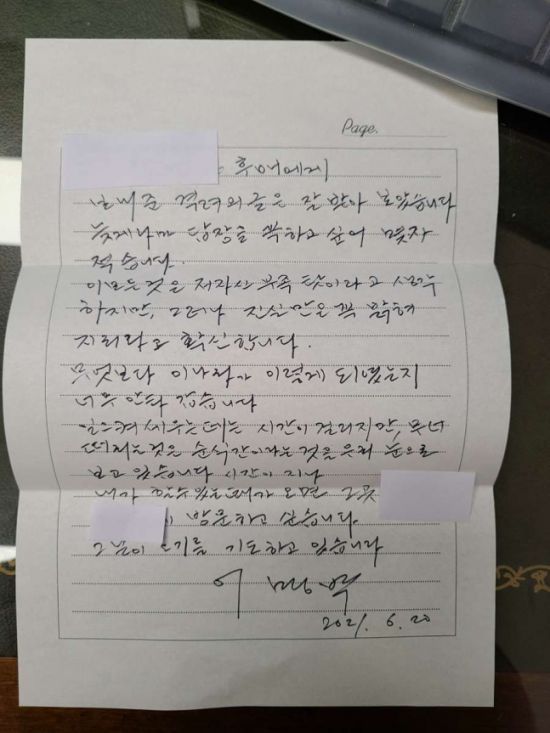 Page.
후배에게
보내준 격려의 글은 잘 받아 보았습니다
늦게나마 답장을 꼭하고 싶어 몇자
적습니다.
이 모든것은 저자신 부족 탓이라고 생각
하지만, 그러나 진실만은 꼭 밝혀
지리라고 확신합니다.
무엇보다 이나라가 이렇게 되었는지
너무 안타 깝습니다
일으켜 세우는데는 시간이 걸리지만, 무너
떠리는것은 순식간이라는것을 우리 눈으로
보고 있습니다 시간이 지나
내가 갈수 있는때가 오면 그곳
방문하고 싶습니다.
그날이 오기를 기도하고 있습니다
이명박
2021. 6. 20